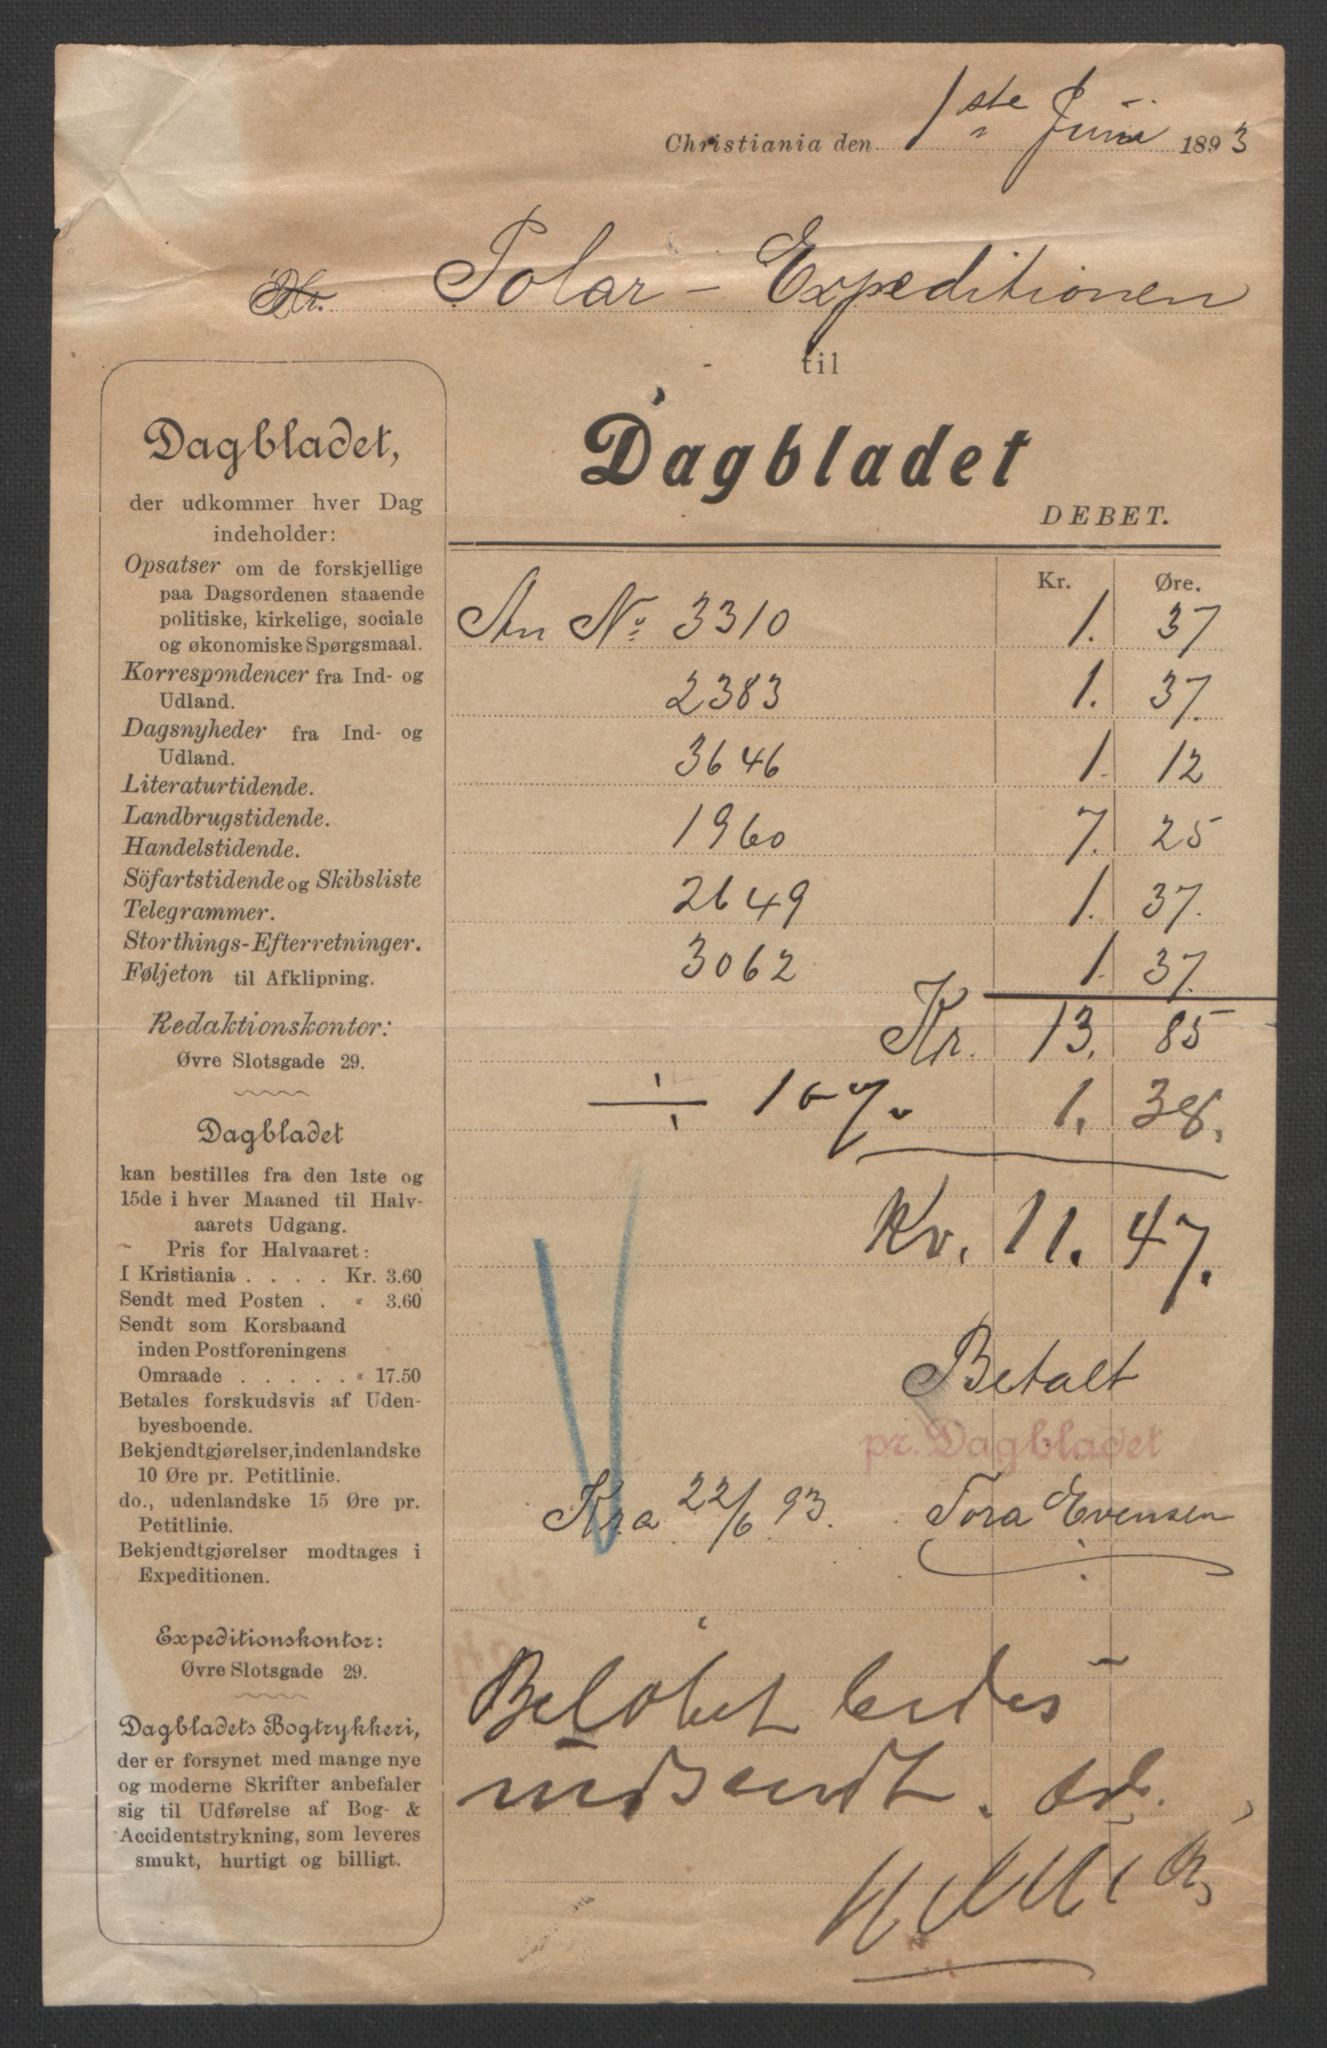 Christiania den 1ste Juni 1893
Hr. Polar-Expeditionen
til
Dagbladet
DEBET.
Dagbladet,
der udkommer hver Dag
indeholder:
Opsatser om de forskjellige
paa Dagsordenen staaende
politiske, kirkelige, sociale
og økonomiske Spørgsmaal.
Korrespondencer fra Ind- og
Udland.
Dagsnyheder fra Ind- og
Udland.
Literaturtidende.
Landbrugstidende.
Handelstidende.
Söfartstidende og Skibsliste
Telegrammer.
Storthings-Efterretninger.
Føljeton til Afklipning.
Redaktionskontor:
Øvre Slotsgade 29.
Dagbladet
kan bestilles fra den 1ste og
15de i hver Maaned til Halv-
aarets Udgang.
Pris for Halvaaret:
I Kristiania . . . . Kr. 3.60
Sendt med Posten . « 3.60
Sendt som Korsbaand
inden Postforeningens
Omraade . . . . . « 17.50
Betales forskudsvis af Uden-
byesboende.
Bekjendtgjørelser, indenlandske
10 Øre pr. Petitlinie.
do., udenlandske 15 Øre pr.
Petitlinie.
Bekjendtgjørelser modtages i
Expeditionen.
Expeditionskontor:
Øvre Slotsgade 29.
Dagbladets Bogtrykkeri,
der er forsynet med mange nye
og moderne Skrifter anbefaler
sig til Udførelse af Bog- &
Accidentstrykning, som leveres
smukt, hurtigt og billigt.
Kr. Øre.
An No 3310 1. 37
2383 1. 37.
3646 1. 12
1960 7. 25
2649 1. 37.
3062 1. 37.
Kr. 13. 85
÷ 10 %. 1. 38.
Kr. 11. 47.
Betalt
pr. Dagbladet
Kra 22/6 93. Tora Evensen
Beløbet bedes
indsendt.